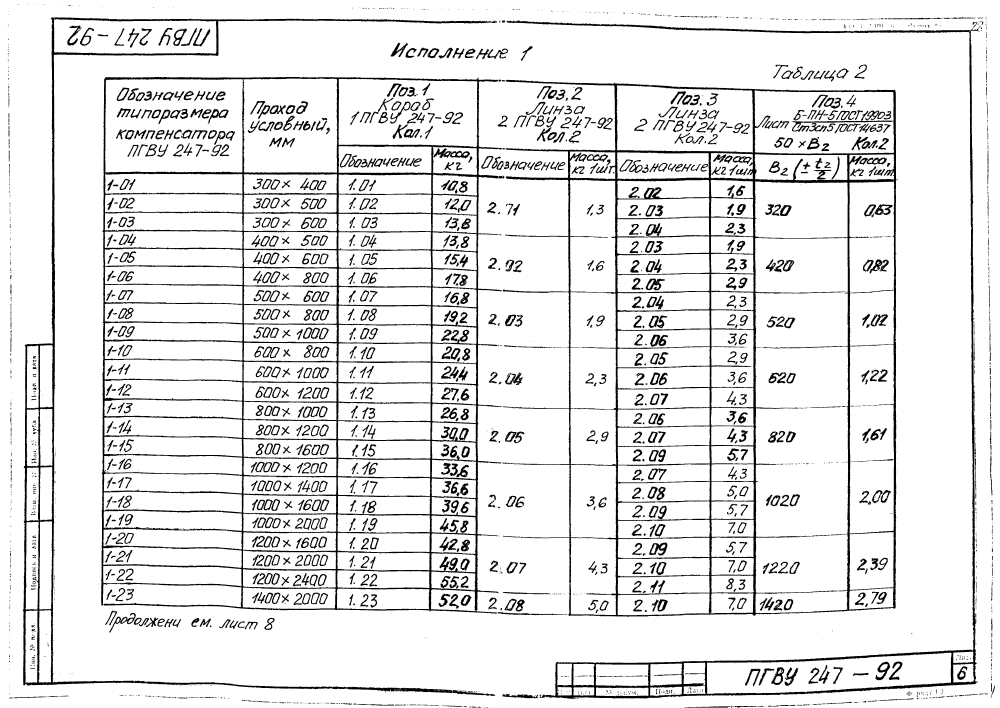 ПГВУ 247-92
23
Исполнение 1
Таблица 2
Обозначение типоразмера компенсатора ПГВУ 247-92
Проход условный, мм
Поз. 1 Караб 1 ПГВУ 247-92 Кол. 1
Поз. 2 Линза 2 ПГВУ 247-92 Кол. 2
Поз. 3 Линза 2 ПГВУ 247-92 Кол. 2
Поз. 4 Лист Б-ПН-5 ГОСТ 19903 Ст3сп5 ГОСТ 14637 50 × B2 Кол. 2
Обозначение Масса, кг Обозначение Масса, кг 1шт. Обозначение Масса, кг 1шт B2 (± t2/2) Масса, кг 1шт
1-01 300 × 400 1.01 10,8 2.02 1,6
1-02 300 × 500 1.02 12,0 2.71 1,3 2.03 1,9 320 0,63
1-03 300 × 600 1.03 13,8 2.04 2,3
1-04 400 × 500 1.04 13,8 2.03 1,9
1-05 400 × 600 1.05 15,4 2.02 1,6 2.04 2,3 420 0,82
1-06 400 × 800 1.06 17,8 2.05 2,9
1-07 500 × 600 1.07 16,8 2.04 2,3
1-08 500 × 800 1.08 19,2 2.03 1,9 2.05 2,9 520 1,02
1-09 500 × 1000 1.09 22,8 2.06 3,6
1-10 600 × 800 1.10 20,8 2.05 2,9
1-11 600 × 1000 1.11 24,4 2.04 2,3 2.06 3,6 620 1,22
1-12 600 × 1200 1.12 27,6 2.07 4,3
1-13 800 × 1000 1.13 26,8 2.06 3,6
1-14 800 × 1200 1.14 30,0 2.05 2,9 2.07 4,3 820 1,61
1-15 800 × 1600 1.15 36,0 2.09 5,7
1-16 1000 × 1200 1.16 33,6 2.07 4,3
1-17 1000 × 1400 1.17 36,6 2.08 5,0
1-18 1000 × 1600 1.18 39,6 2.06 3,6 2.09 5,7 1020 2,00
1-19 1000 × 2000 1.19 45,8 2.10 7,0
1-20 1200 × 1600 1.20 42,8 2.09 5,7
1-21 1200 × 2000 1.21 49,0 2.07 4,3 2.10 7,0 1220 2,39
1-22 1200 × 2400 1.22 55,2 2.11 8,3
1-23 1400 × 2000 1.23 52,0 2.08 5,0 2.10 7,0 1420 2,79
Продолжени ем. лист 8
ПГВУ 247 - 92
6
№ докум. Подп. Дата
Подпись и дата